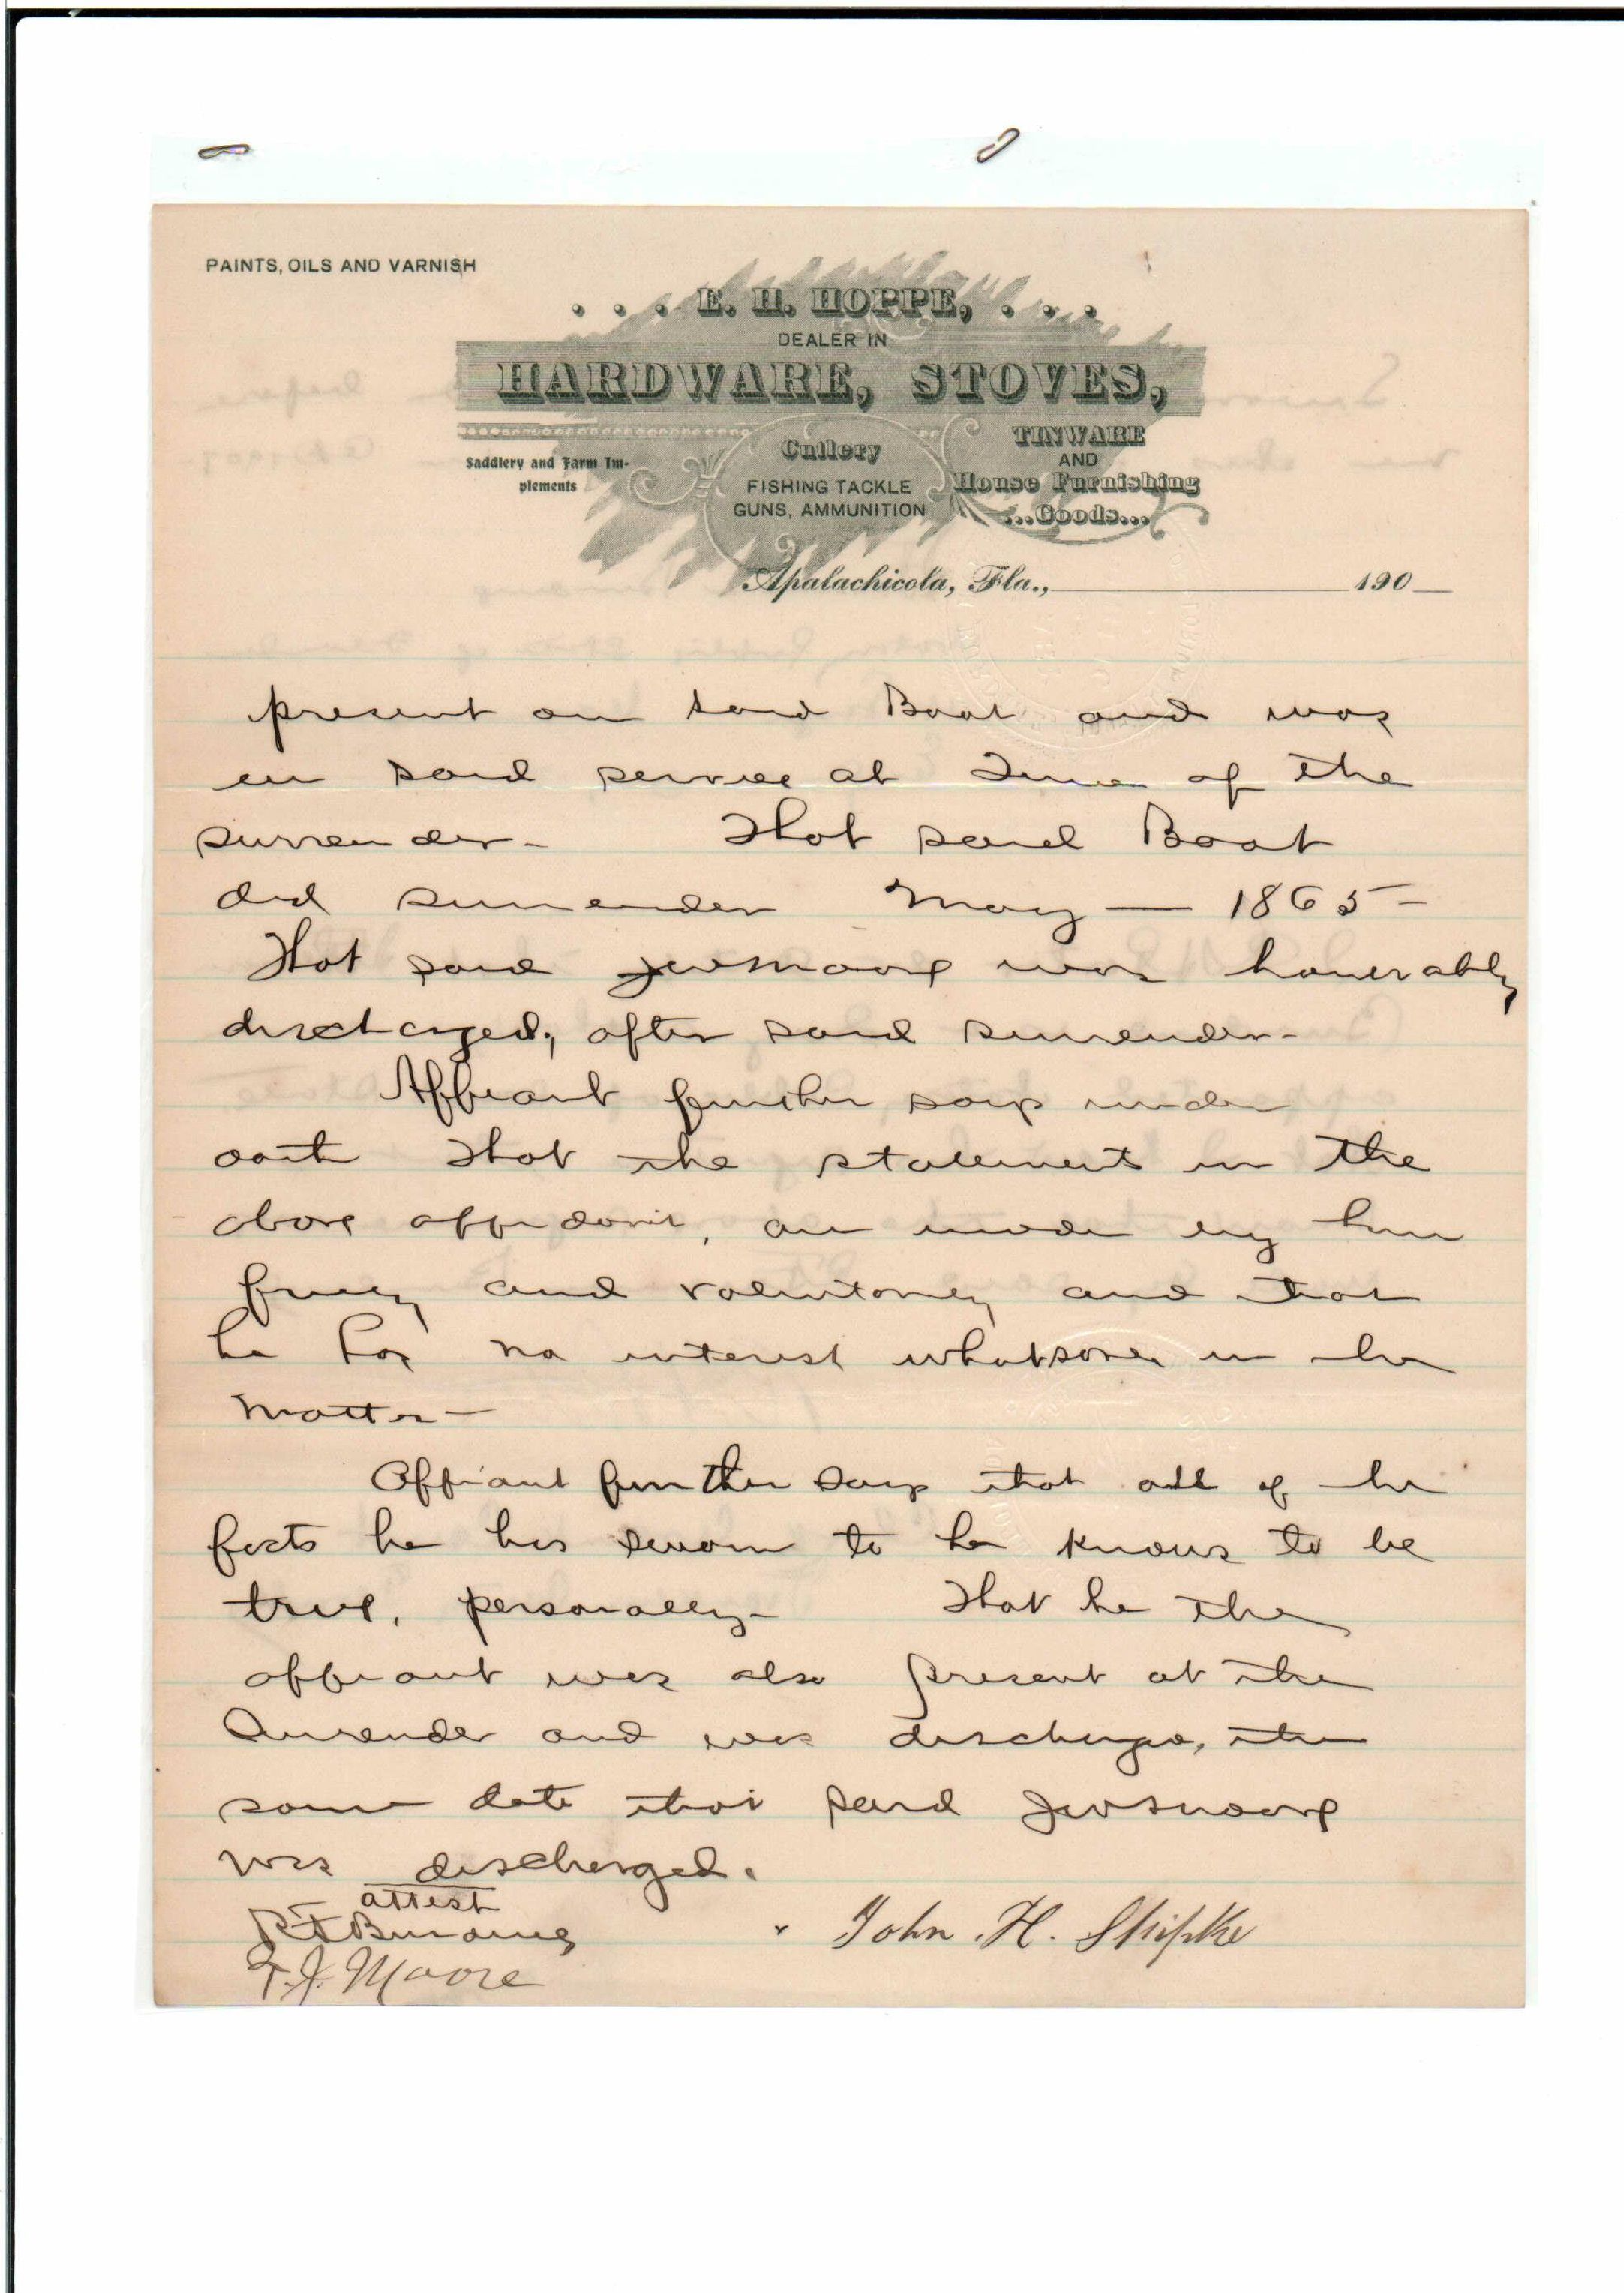 PAINTS, OILS AND VARNISH
. . . E. H. HOPPE, . . .
DEALER IN
HARDWARE, STOVES,
Saddlery and Farm Im-
plements
Cutlery
FISHING TACKLE
GUNS, AMMUNITION
TINWARE
AND
House Furnishing
...Goods...
Apalachicola, Fla., 190
present on said Boat and was
in said service at Time of the
surrender- That said Boat
did surrender May — 1865 -
That said JWMoore was honerably
discharged, after said surrender-
Affiant further says under
oath that the statements in the
above affidavit, are made by him
freely and voluntarely and that
he has no interest whatsover in the
matter -
Affiant further says that all of the
facts he has sworn to he knows to be
true, personally- That he the
affiant was also present at the
Surrender and was discharged, the
same date that said JWMoore
was discharged.
attest
John H. Shipke
T. J. Moore